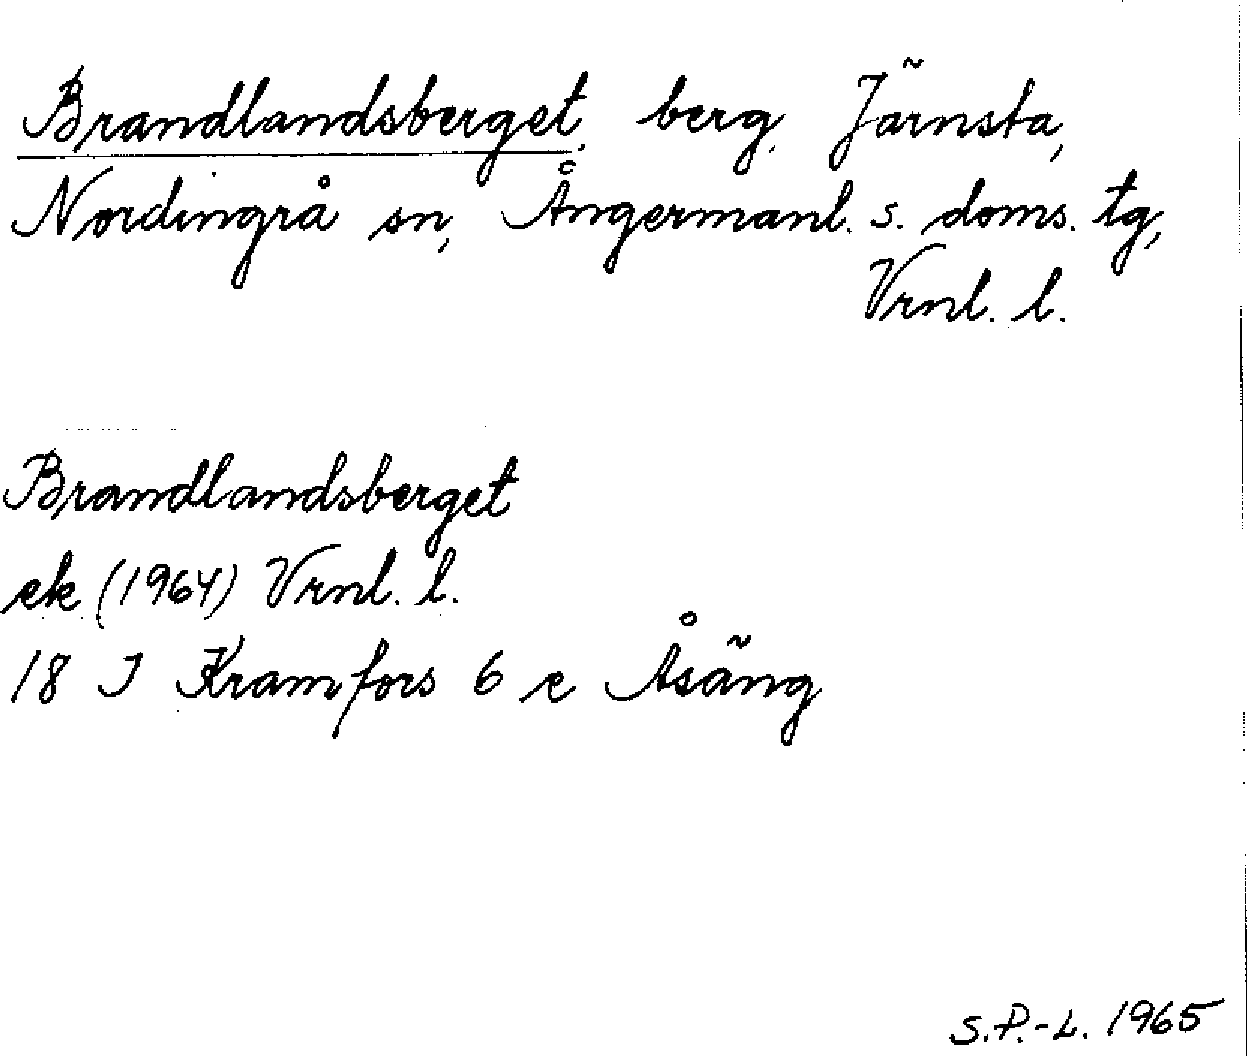 Brandlandsberget, berg, Järnsta,
Nordingrå sn, Ångermanl. s. doms. tg,
Vrnl. l.
Brandlandsberget
ek (1964) Vrnl. l.
18 J Kramfors 6 e Åsäng
S.P.-L. 1965